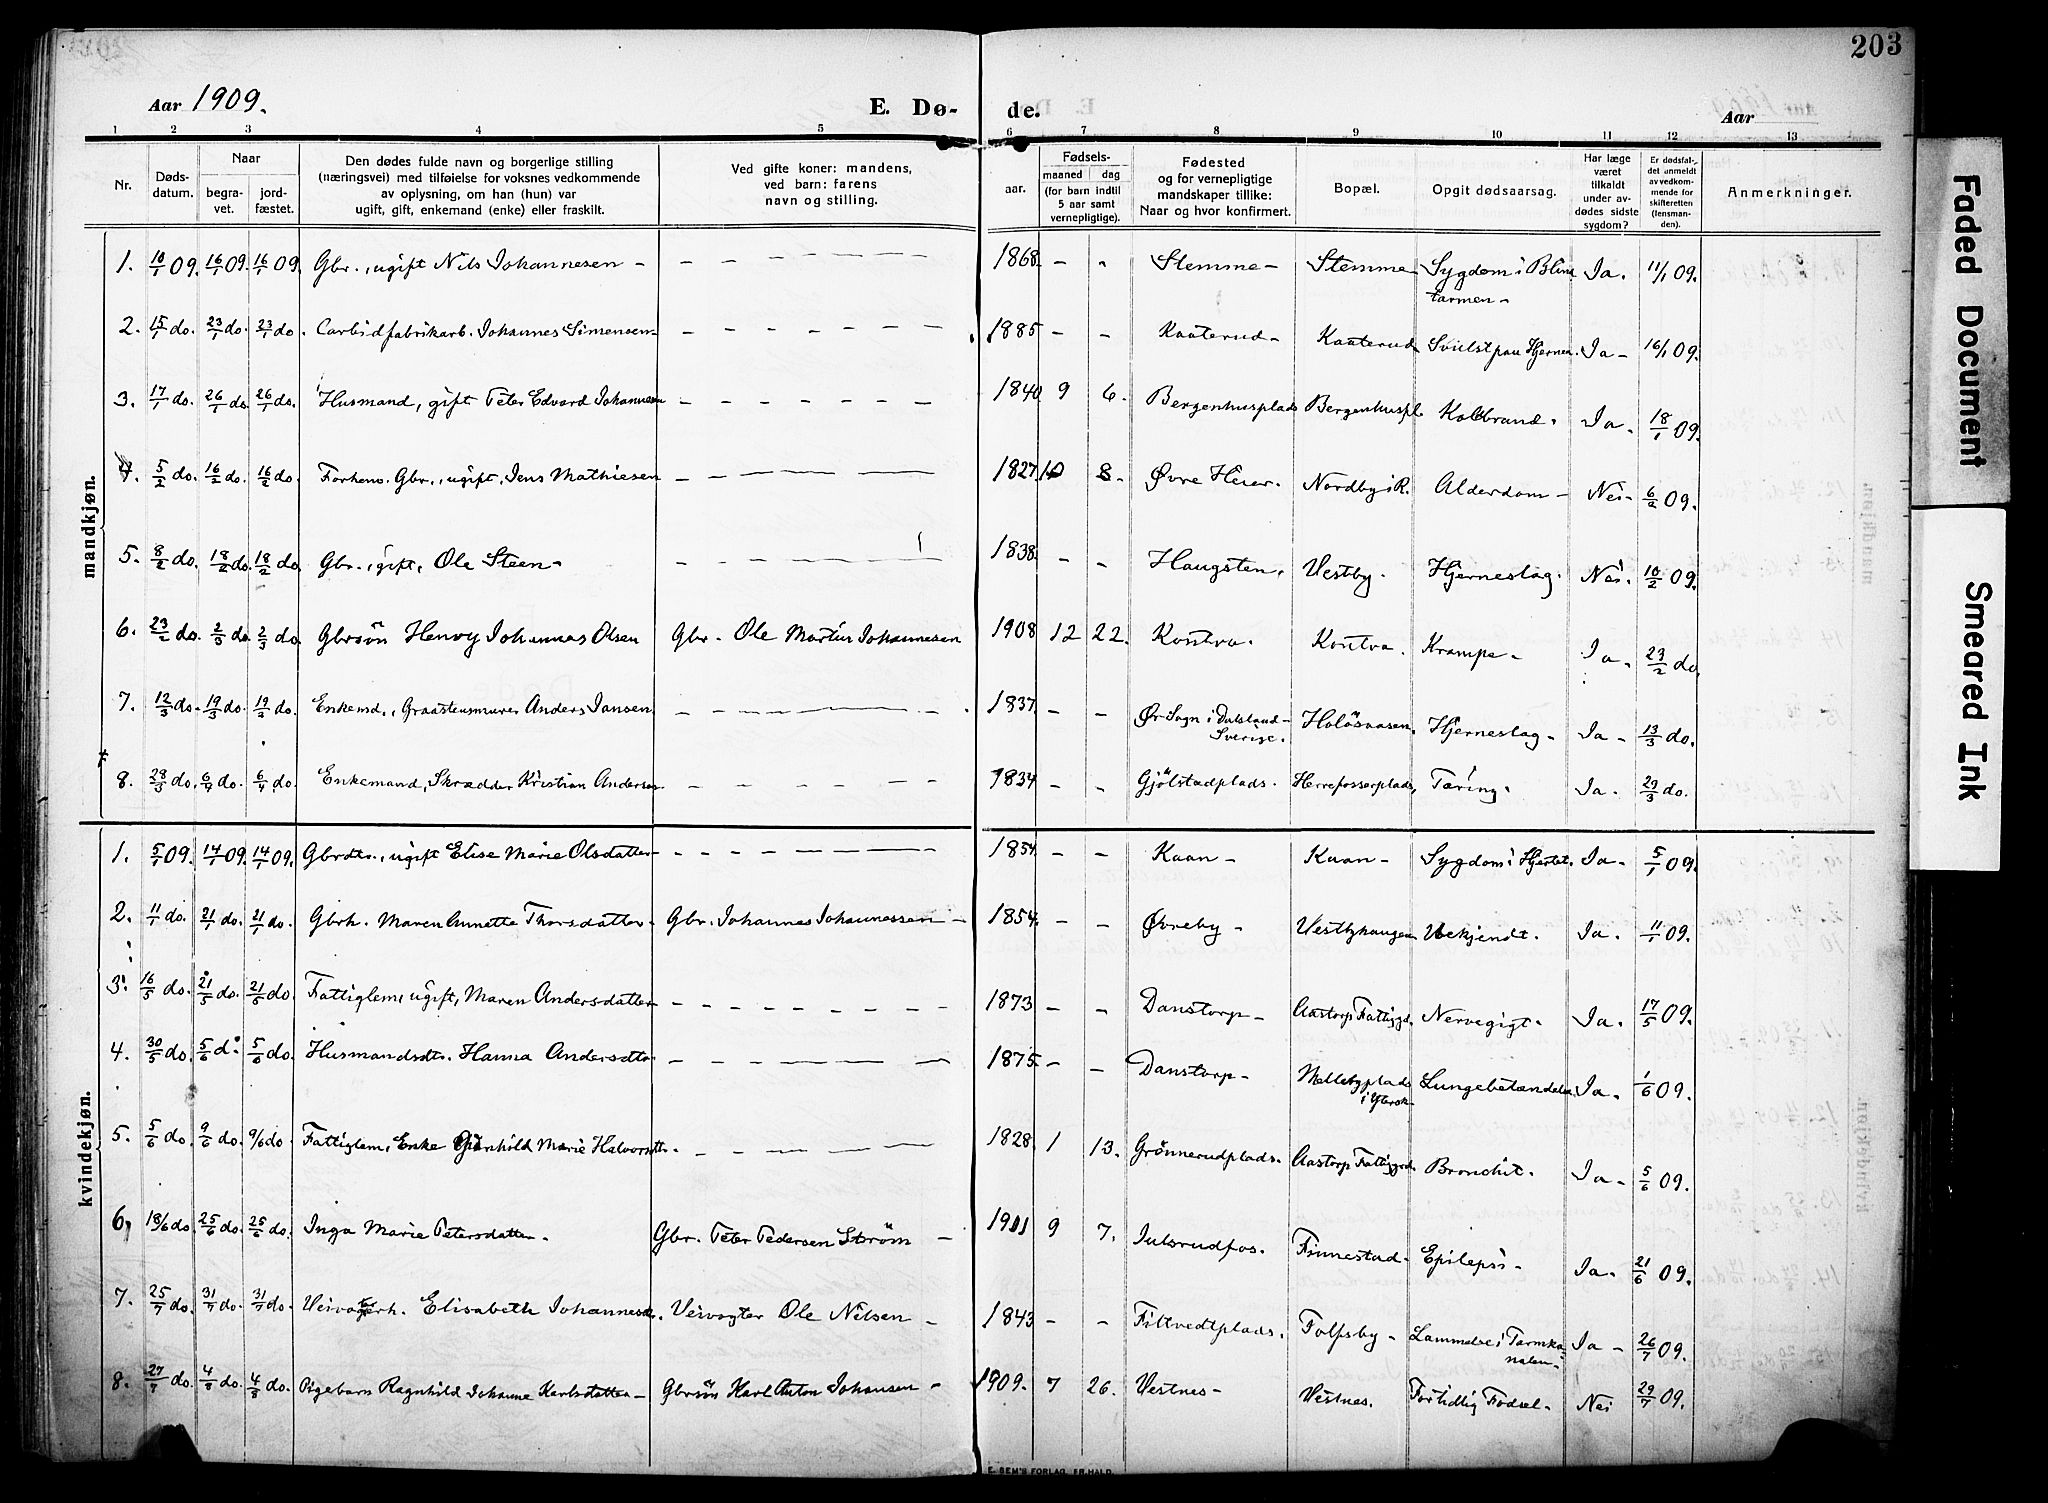 203
Aar 1909. E. Dø- de. Aar
1 2 3 4 5 6 7 8 9 10 11 12 13
Nr. Døds-datum. Naar begra-vet. jord-fæstet. Den dødes fulde navn og borgerlige stilling (næringsvei) med tilføielse for voksnes vedkommende av oplysning, om han (hun) var ugift, gift, enkemand (enke) eller fraskilt. Ved gifte koner: mandens, ved barn: farens navn og stilling. Fødsels- aar. maaned dag (for barn indtil 5 aar samt vernepligtige). Fødested og for vernepligtige mandskaper tillike: Naar og hvor konfirmert. Bopæl. Opgit dødsaarsag. Har læge været tilkaldt under av-dødes sidste sygdom? Er dødsfal-det anmeldt av vedkom-mende for skifteretten (lensman-den). Anmerkninger.
mandkjøn.
1. 10/1 09. 16/1 09. 16/1 09. Gbr., ugift Nils Johannesen - 1868 - - Stemme - Stemme Sygdom i Blind tarmen - Ja. 11/1 09.
2. 15/1 do. 23/1 do. 23/1 do. Carbidfabrikarb. Johannes Simensen - 1885 - - Kaaterud - Kaaterud Svulst paa Hjernen. Ja - 16/1 09.
3. 17/1 do. 26/1 do. 26/1 do. Husmand, gift Peter Edvard Johannesen 1840 9 6. Bergenhusplads Bergenhuspl. Koldbrand. Ja. 18/1 09.
4. 5/2 do. 16/2 do. 16/2 do. Forhenv. Gbr., ugift, Jens Mathiesen 1827 10 8. Øvre Heier. Nordby i R. Alderdom - Nei - 6/2 09.
5. 8/2 do. 18/2 do. 18/2 do. Gbr., gift, Ole Steen - 1838 - - Haugsten. Vestby. Hjerneslag. Nei. 10/2 09.
6. 23/2 do. 2/3 do. 2/3 do. Gbrsön Henry Johannes Olsen Gbr. Ole Martin Johannesen 1908 12 22. Kontra. Kontra. Krampe - Ja. 23/2 do.
7. 12/3 do. 19/3 do. 19/3 do. Enkemd., Graastensmurer Anders Jansen 1837 - - Ør Sogn i Dalsland - Sverige. Holösaasen. Hjerneslag - Ja - 13/3 do.
8. 28/3 do. 6/4 do. 6/4 do. Enkemand, Skrædder Kristian Andersen 1834 - - Gjölstadplads. Herrefosserplads, Tæring. Ja. 29/3 do.
kvindekjøn.
1. 5/1 09. 14/1 09. 14/1 09. Gbrdtr., ugift Elise Marie Olsdatter - 1854 - - Kaan - Kaan - Sygdom i Hjertet. Ja - 5/1 09.
2. 11/1 do. 21/1 do. 21/1 do. Gbrh. Maren Annette Thorsdatter. Gbr. Johannes Johannessen - 1854. - - Øvreby - Vestbyhaugen Ubekjendt. Ja. 11/1 09.
3. 16/5 do. 21/5 do. 21/5 do. Fattiglem, ugift, Maren Andersdatter 1873 - - Danstorp - Aastorp Fattiggd. Nervegigt. Ja. 17/5 09.
4. 30/5 do. 5/6 d. 5/6 do. Husmandsdtr. Hanna Andersdtr. 1875. - - Danstorp - Mellebyplads i Yterok Lungebetændelse Ja. 1/6 09.
5. 5/6 do. 9/6 do. 9/6 do Fattiglem, Enke Gunhild Marie Halvorsdtr. 1828 1 13. Grönnerudplads. Aastorp Fattiggrd. Bronchit. Ja - 5/6 09.
6, 18/6 do. 25/6 do. 25/6 do. Inga Marie Petersdatter. Gbr. Peter Pedersen Ström - 9 7. Julsrudfos. Finnestad. Epilepsi - Ja. 21/6 09.
7. 25/7 do. 31/7 do. 31/7 do. Veivogterh. Elisabeth Johannesdtr. Veivogter Ole Nilsen - 1843 - - Fittvedtplads. Folfsby - Lammelse i Tarmka-nalen - Ja - 26/7 09.
8. 27/7 do. 4/8 do. 4/8 do. Pigebarn Ragnhild Johanne Karlsdatter - Gbrsön Karl Anton Johansen - 1909. 7 26. Vestnes - Vestnes. Fortidlig Födsel. Nei 29/7 09.
E. SEM'S FORLAG, FR.HALD.
Faded Document
Smeared Ink